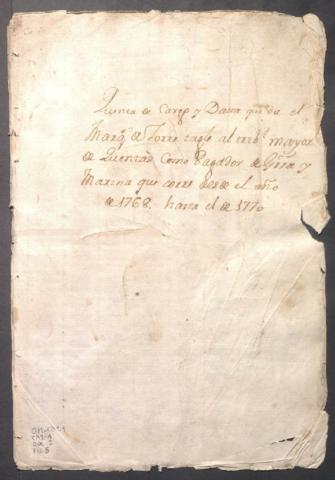 Quenta de Cargo y Data que da el
Marq.s de Torre tagle al trib.l mayor
de Quentas Como Pagador de Grra y
Marina que corre desde el año
de 1768 hasta el de 1770